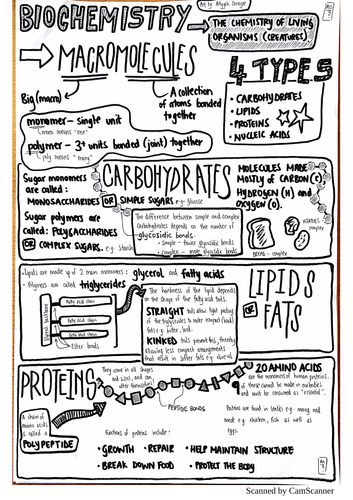 BIOCHEMISTRY
THE CHEMISTRY OF LIVING
ORGANISMS (CREATURES)
MACROMOLECULES
Big (macro)
A collection
of atoms bonded
together
monomer - single unit
mono means "one"
polymer - 3+ units bonded (joint) together
poly means "many"
4 TYPES
• CARBOHYDRATES
• LIPIDS
• PROTEINS
• NUCLEIC ACIDS
CARBOHYDRATES
Sugar monomers
are called:
MONOSACCHARIDES OR SIMPLE SUGARS e.g. glucose
Sugar polymers are
called: POLYSACCHARIDES
OR COMPLEX SUGARS. e.g. starch
MOLECULES MADE
MOSTLY OF CARBON (C),
HYDROGEN (H) AND
OXYGEN (O).
The difference between simple and complex
carbohydrates depends on the number of
glycosidic bonds.
- simple - fewer glycosidic bonds
- complex - more glycosidic bonds
BREAD - complex
• Lipids are made up of 2 main monomers: glycerol and fatty acids
• Polymers are called triglycerides
Glycerol backbone
Fatty acid chain
Fatty acid chain
Fatty acid chain
Ester bonds
The hardness of the lipid depends
on the shape of the fatty acid tails.
STRAIGHT tails allow tight packing
of the triglycerides to make compact (hard)
fats e.g. butter, lard.
KINKED tails prevent this, thereby
allowing less compact arrangements
that result in softer fats e.g. olive oil
LIPIDS
OR
FATS
PROTEINS
They come in all shapes
and sizes, and can
alter themselves!
PEPTIDE BONDS
A chain of
amino acids
is called a
POLYPEPTIDE
20 AMINO ACIDS
are the monomers of human proteins.
9 of these cannot be made in our bodies
and must be consumed as "essential".
Proteins are found in foods e.g. many
meat e.g. chicken, fish as well as
eggs.
Functions of proteins include:
• GROWTH • REPAIR • HELP MAINTAIN STRUCTURE
• BREAK DOWN FOOD • PROTECT THE BODY
Scanned by CamScanner